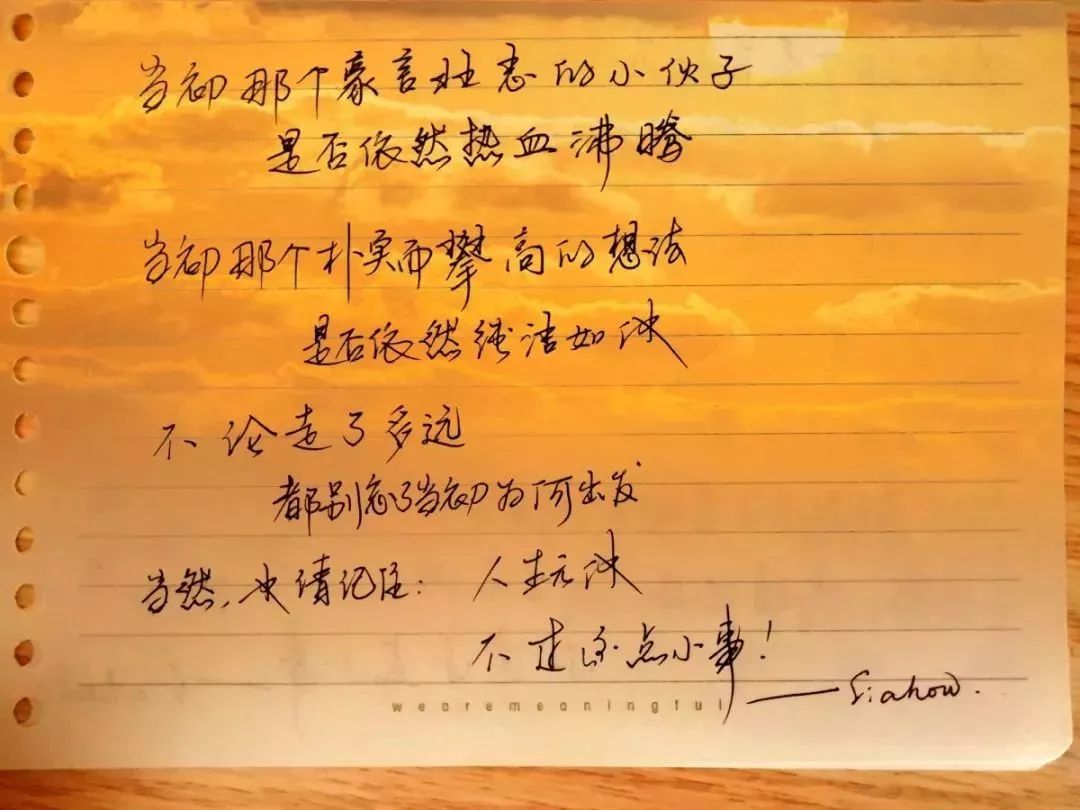 当初那个豪言壮志的小伙子
是否依然热血沸腾
当初那个朴实而攀高的想法
是否依然纯洁如你
不论走了多远
都别忘了当初为何出发
当然,也请记住: 人生元他
不过这点小事!
——Siahow.
wearemeaningful